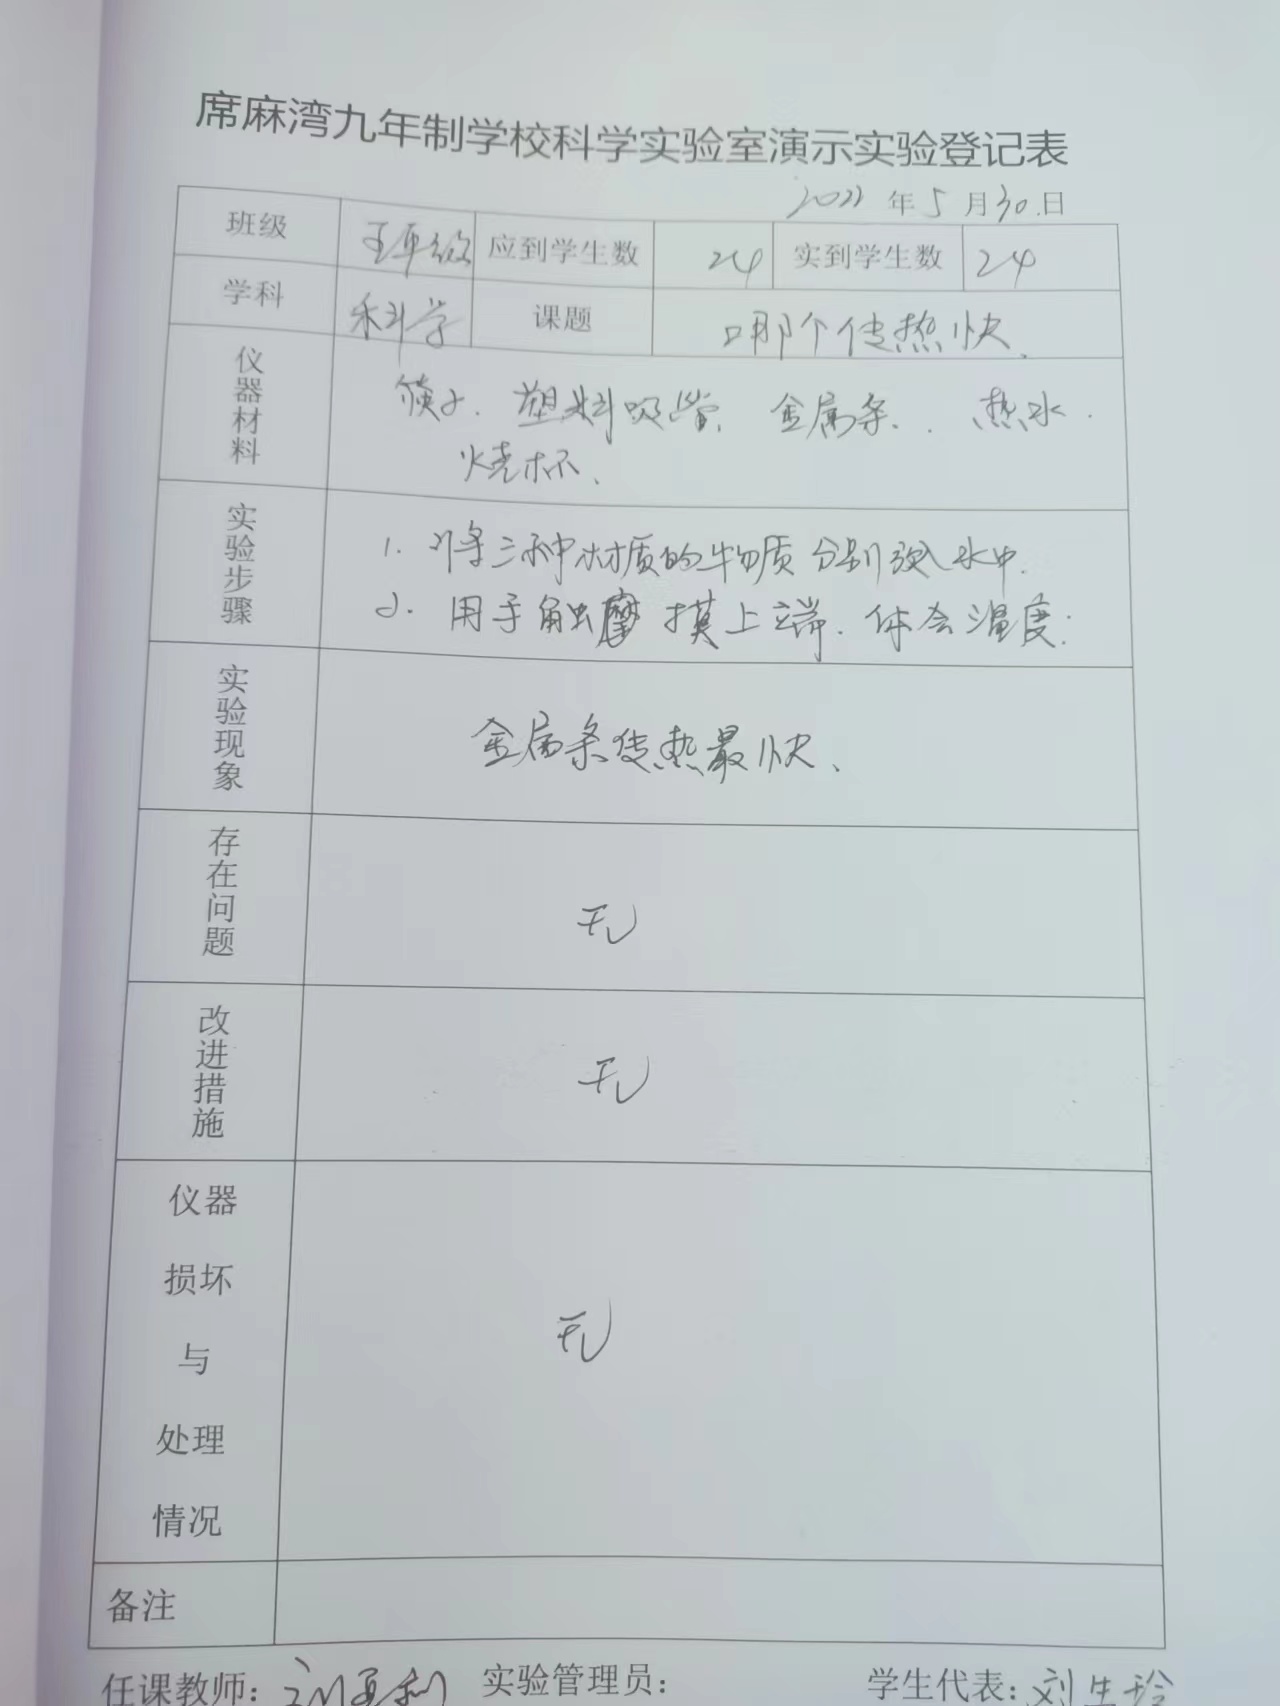 席麻湾九年制学校科学实验室演示实验登记表
2022年5月30日
班级 五年级 应到学生数 24 实到学生数 24
学科 科学 课题 哪个传热快、
仪器材料 筷子、塑料吸管、金属条、、热水、
烧杯、
实验步骤 1. 将三种材质的物质分别放入水中.
2. 用手触摩摸上端.体会温度.
实验现象 金属条传热最快、
存在问题 无
改进措施 无
仪器
损坏
与 无
处理
情况
备注
任课教师: 刘 利 实验管理员: 学生代表: 刘生玲